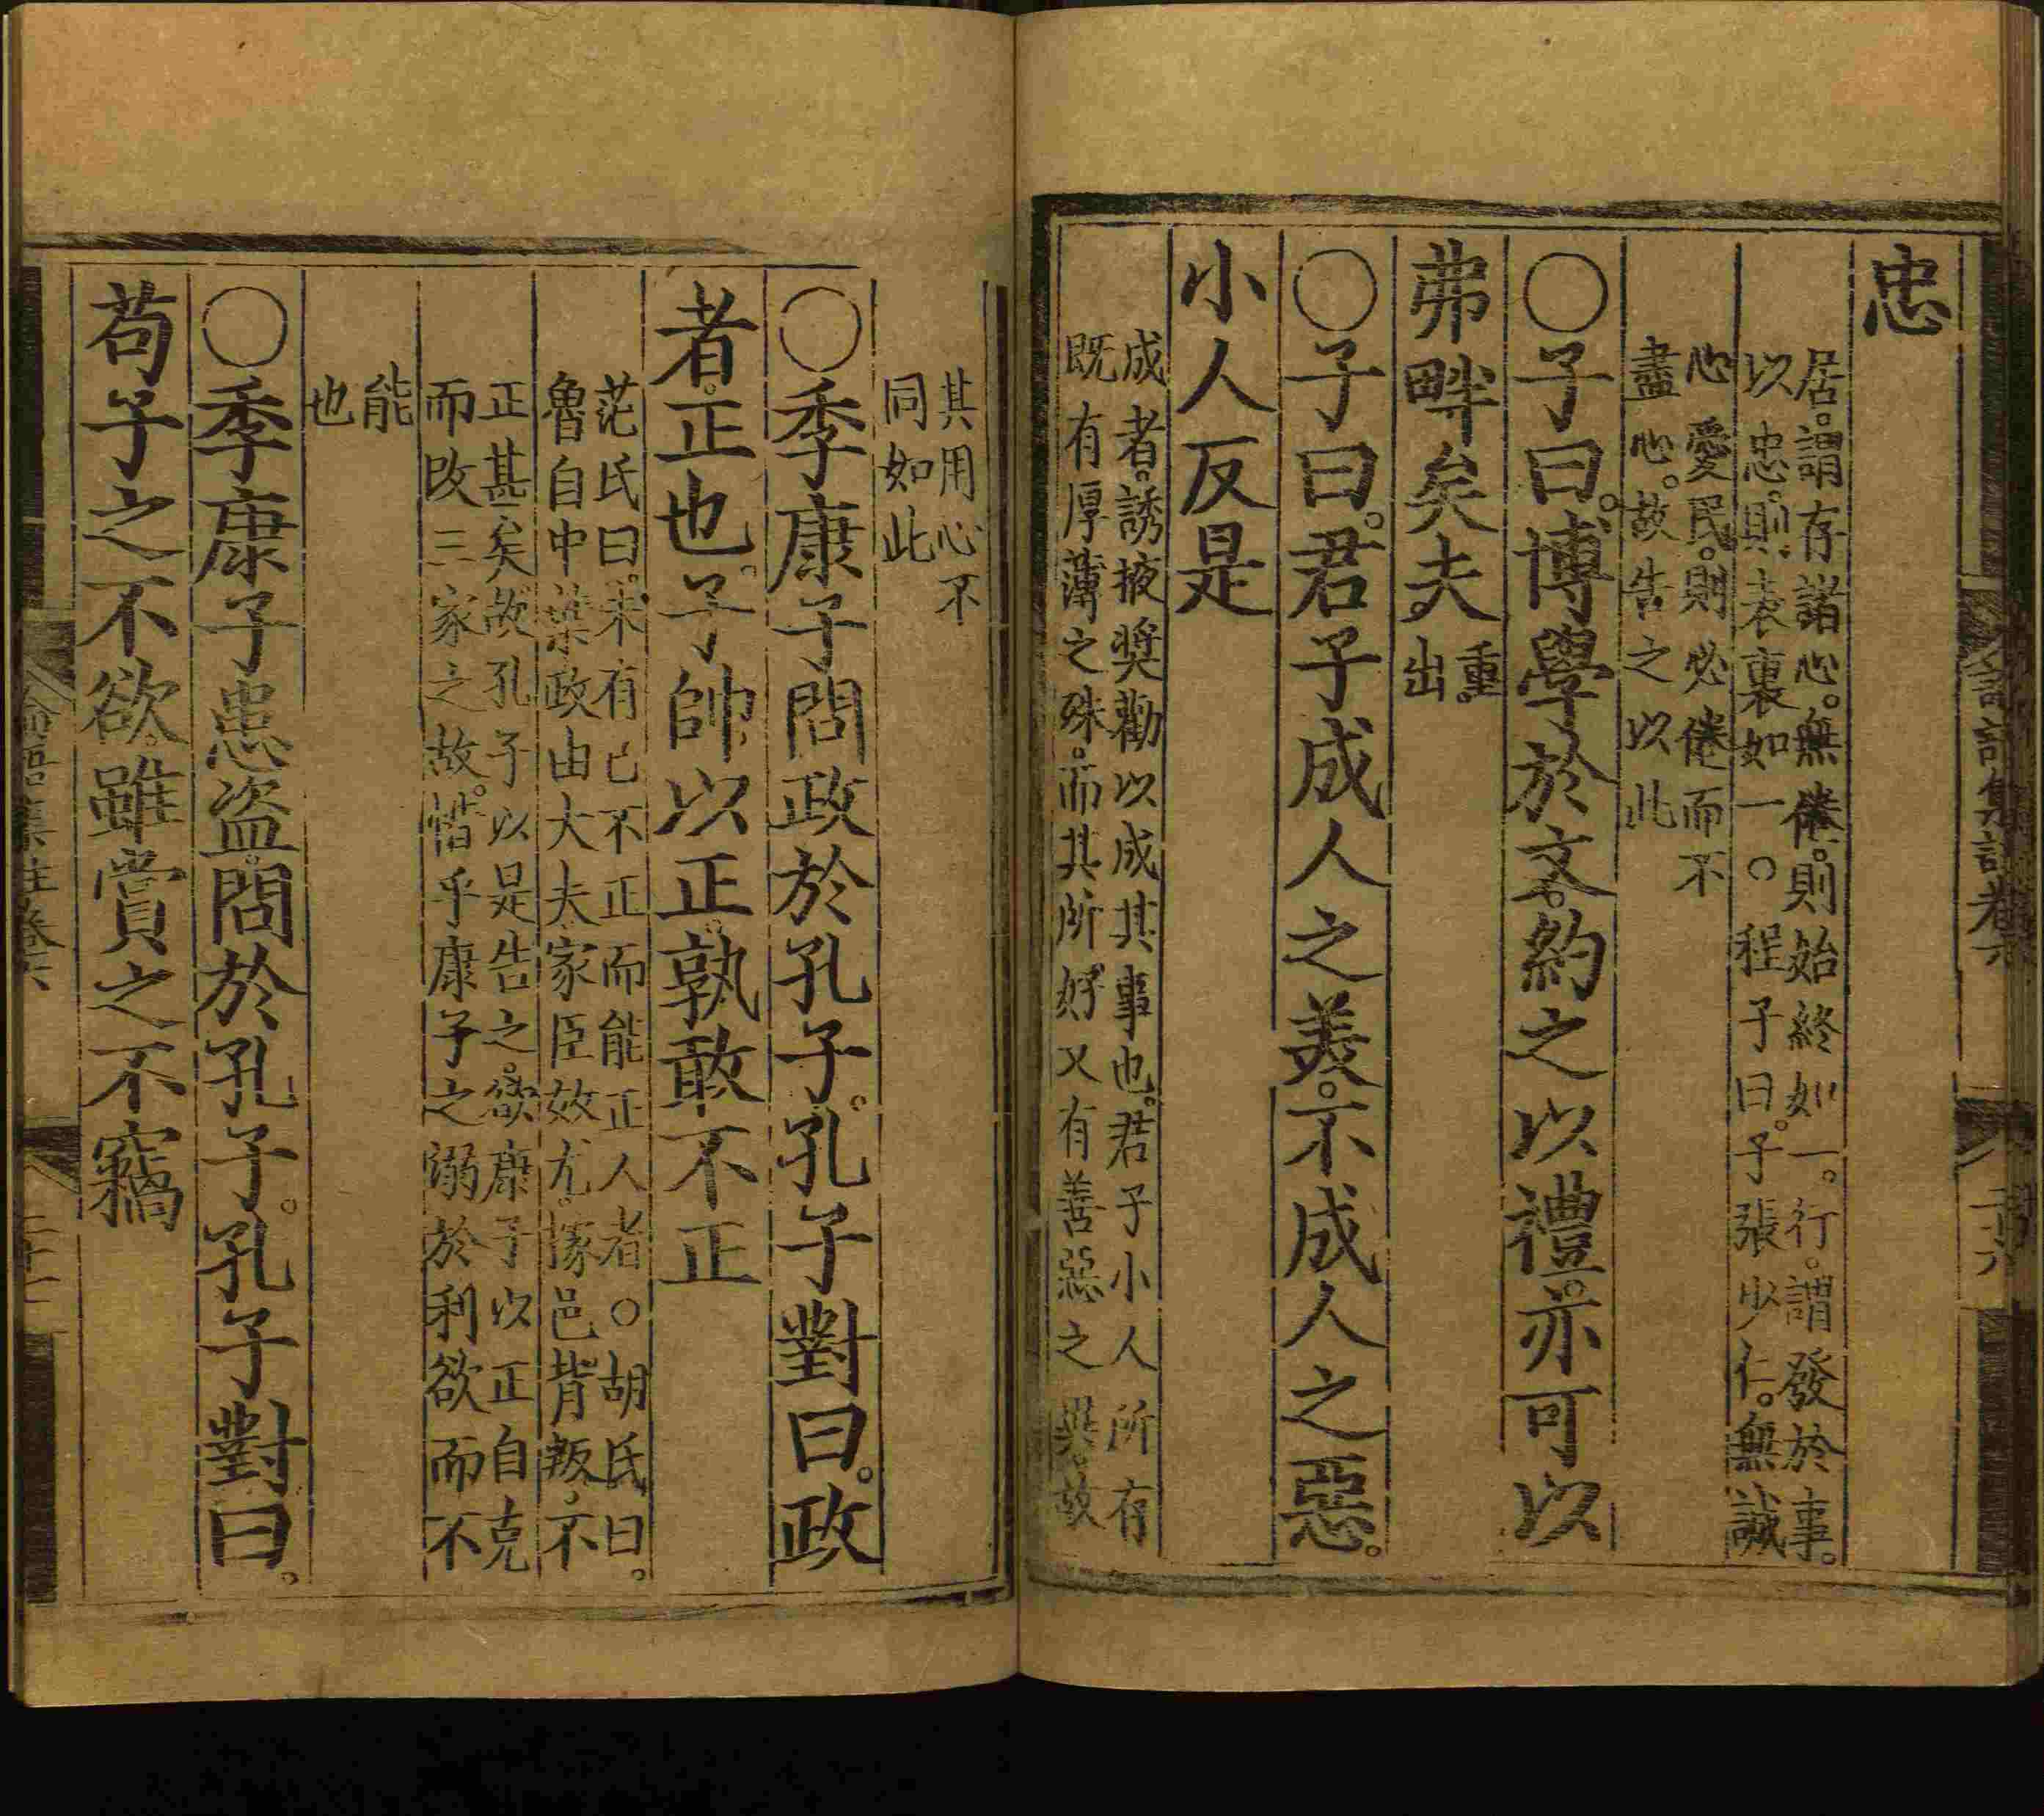 忠
居。謂存諸心。無倦。則始終如一。行。謂發於事。
以忠。則表裏如一。○程子曰。子張少仁。無誠
心愛民。則必倦而不
盡心。故告之以此
○子曰。博學於文。約之以禮。亦可以
弗畔矣夫。重。出
○子曰。君子成人之美。不成人之惡。
小人反是
成者。誘掖奬勸以成其事也。君子小人所有
既有厚薄之殊。而其所好。又有善惡之異。故
其用心不
同如此
○季康子問政於孔子。孔子對曰。政
者。正也。子帥以正。孰敢不正
范氏曰。未有己不正而能正人者。○胡氏曰。
魯自中葉。政由大夫。家臣效尤。據邑背叛。不
正甚矣。故孔子以是告之。欲康子以正自克
而改三家之故。惜乎康子之溺於利欲而不
能
也
○季康子患盜。問於孔子。孔子對曰。
苟子之不欲。雖賞之不竊
論語集註卷六
二十一